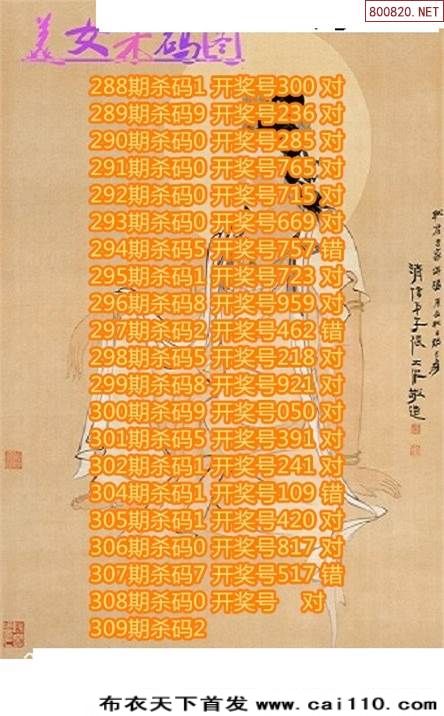 800820.NET
美女杀码图
288期杀码1 开奖号300 对
289期杀码9 开奖号236 对
290期杀码0 开奖号285 对
291期杀码0 开奖号765 对
292期杀码0 开奖号715 对
293期杀码0 开奖号669 对
294期杀码5 开奖号757 错
295期杀码1 开奖号723 对
296期杀码8 开奖号959 对
297期杀码2 开奖号462 错
298期杀码5 开奖号218 对
299期杀码8 开奖号921 对
300期杀码9 开奖号050 对
301期杀码5 开奖号391 对
302期杀码1 开奖号241 对
304期杀码1 开奖号109 错
305期杀码1 开奖号420 对
306期杀码0 开奖号817 对
307期杀码7 开奖号517 错
308期杀码0 开奖号 对
309期杀码2
布衣天下首发 www.cai110.com